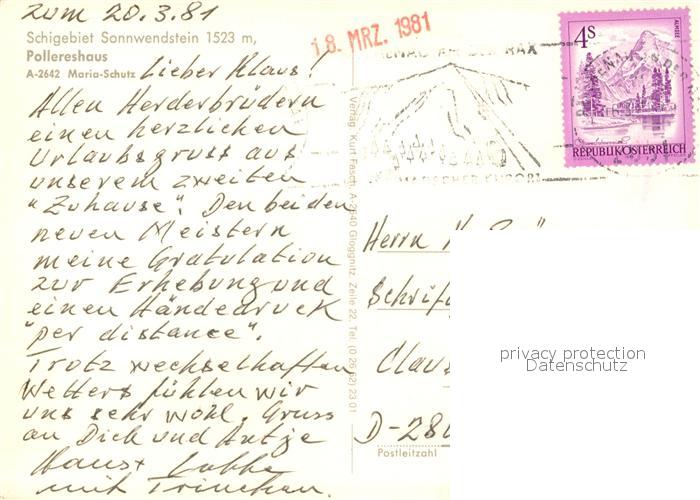 zum 20.3.81
Schigebiet Sonnwendstein 1523 m,
Pollereshaus
A-2642 Maria-Schutz
Lieber Klaus!
Allen Herderbrüdern
einen herzlichen
Urlaubsgruss aus
unserem zweiten
"Zuhause". Den beiden
neuen Meistern
meine Gratulation
zur Erhebung und
einen Händedruck
"per distance".
Trotz wechselhaften
Wetters fühlen wir
uns sehr wohl. Gruss
an Dich und Antje
Hans
mit Trinchen.
Verlag: Kurt Fasch, A-2640 Gloggnitz, Zeile 22, Tel. (0 26 62) 23 01
18. MRZ. 1981
AN DER RAX
4 S
ALMSEE
REPUBLIK ÖSTERREICH
Herrn
Schrif
Claus
D-280
Postleitzahl
privacy protection
Datenschutz